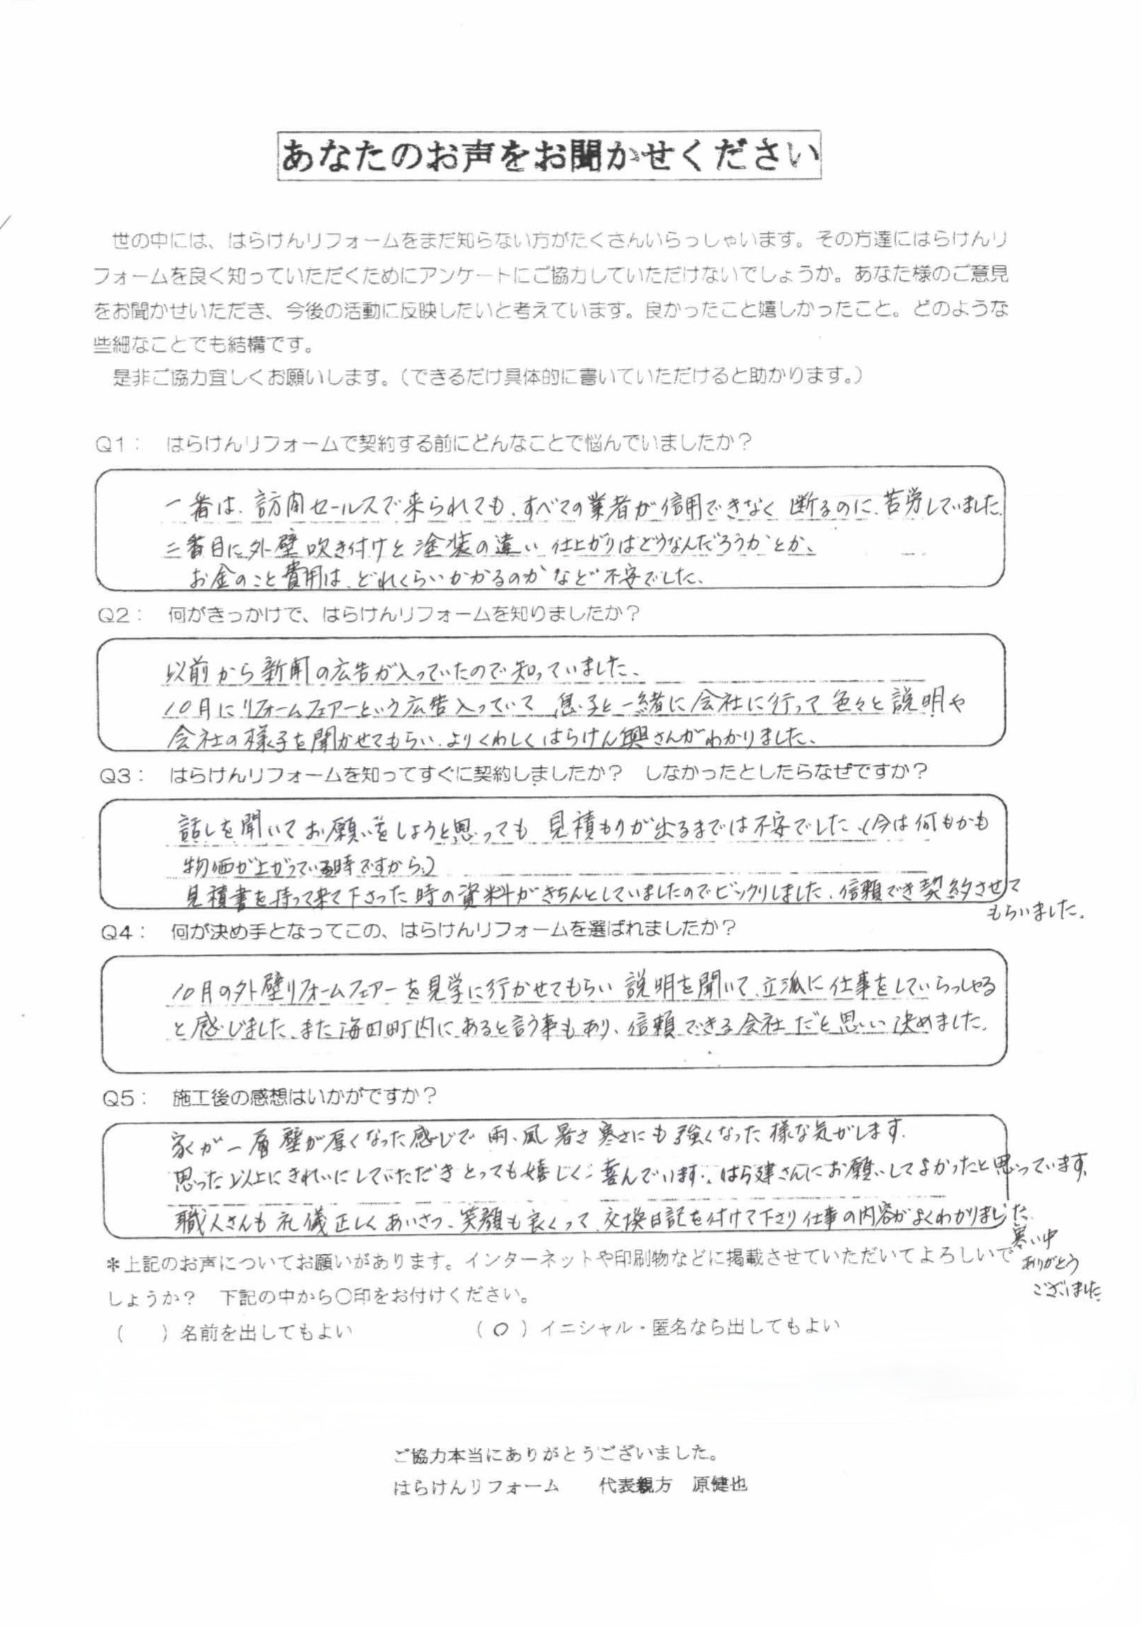 あなたのお声をお聞かせください
世の中には、はらけんリフォームをまだ知らない方がたくさんいらっしゃいます。その方達にはらけんリ
フォームを良く知っていただくためにアンケートにご協力していただけないでしょうか。あなた様のご意見
をお聞かせいただき、今後の活動に反映したいと考えています。良かったこと嬉しかったこと。どのような
些細なことでも結構です。
是非ご協力宜しくお願いします。(できるだけ具体的に書いていただけると助かります。)
Q1: はらけんリフォームで契約する前にどんなことで悩んでいましたか?
一番は、訪問セールスで来られても、すべての業者が信用できなく 断るのに、苦労していました。
二番目に外壁吹き付けと塗装の違い 仕上がりはどうなんだろうかとか、
お金のこと費用は、どれくらいかかるのかなど不安でした。
Q2: 何がきっかけで、はらけんリフォームを知りましたか?
以前から新聞の広告が入っていたので知っていました。
10月にリフォームフェアーという広告入っていて 息子と一緒に会社に行って色々と説明や
会社の様子を聞かせてもらい、よりくわしくはらけん興さんがわかりました。
Q3: はらけんリフォームを知ってすぐに契約しましたか? しなかったとしたらなぜですか?
話しを聞いてお願いをしようと思っても 見積もりが出るまでは不安でした、(今は何もかも
物価が上がっている時ですから。)
見積書を持って来て下さった時の資料がきちんとしていましたのでビックリしました、信頼でき契約させて
もらいました。
Q4: 何が決め手となってこの、はらけんリフォームを選ばれましたか?
10月の外壁リフォームフェアーを見学に行かせてもらい 説明を聞いて、立派に仕事をしていらっしゃる
と感じました、また海田町内にあると言う事もあり、信頼できる会社だと思い決めました。
Q5: 施工後の感想はいかがですか?
家が一層壁が厚くなった感じで 雨、風 暑さ寒さにも強くなった様な気がします。
思った以上にきれいにしていただきとっても嬉しく喜んでいます、はら建さんにお願いしてよかったと思っています。
職人さんも礼儀正しくあいさつ、笑顔も良くって、交換日記を付けて下さり仕事の内容がよくわかりました。
寒い中
ありがとう
ございました
*上記のお声についてお願いがあります。インターネットや印刷物などに掲載させていただいてよろしいで
しょうか? 下記の中から〇印をお付けください。
( )名前を出してもよい (○)イニシャル・匿名なら出してもよい
ご協力本当にありがとうございました。
はらけんリフォーム 代表親方 原健也